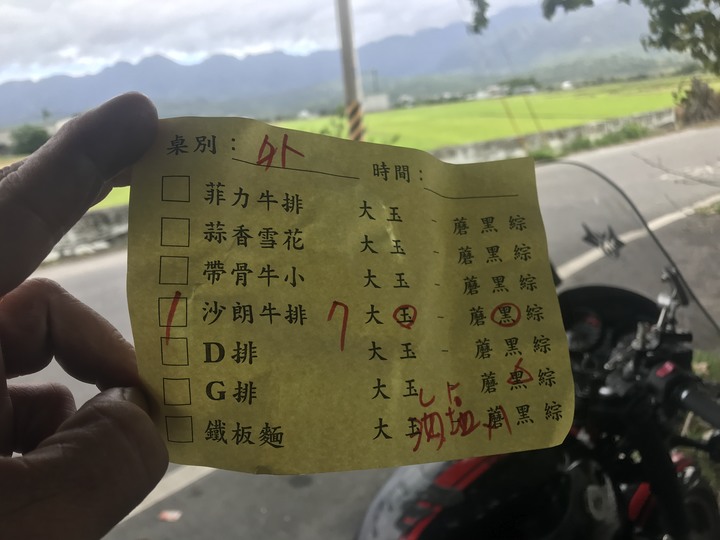 桌別： 外 時間：
菲力牛排 大 玉 - 蘑 黑 綜
蒜香雪花 大 玉 - 蘑 黑 綜
帶骨牛小 大 玉 - 蘑 黑 綜
1 沙朗牛排 7 大 玉 - 蘑 黑 綜
D排 大 玉 - 蘑 黑 綜
G排 大 玉 蘑 黑 綜
鐵板麵 大 玉 蘑 黑 綜